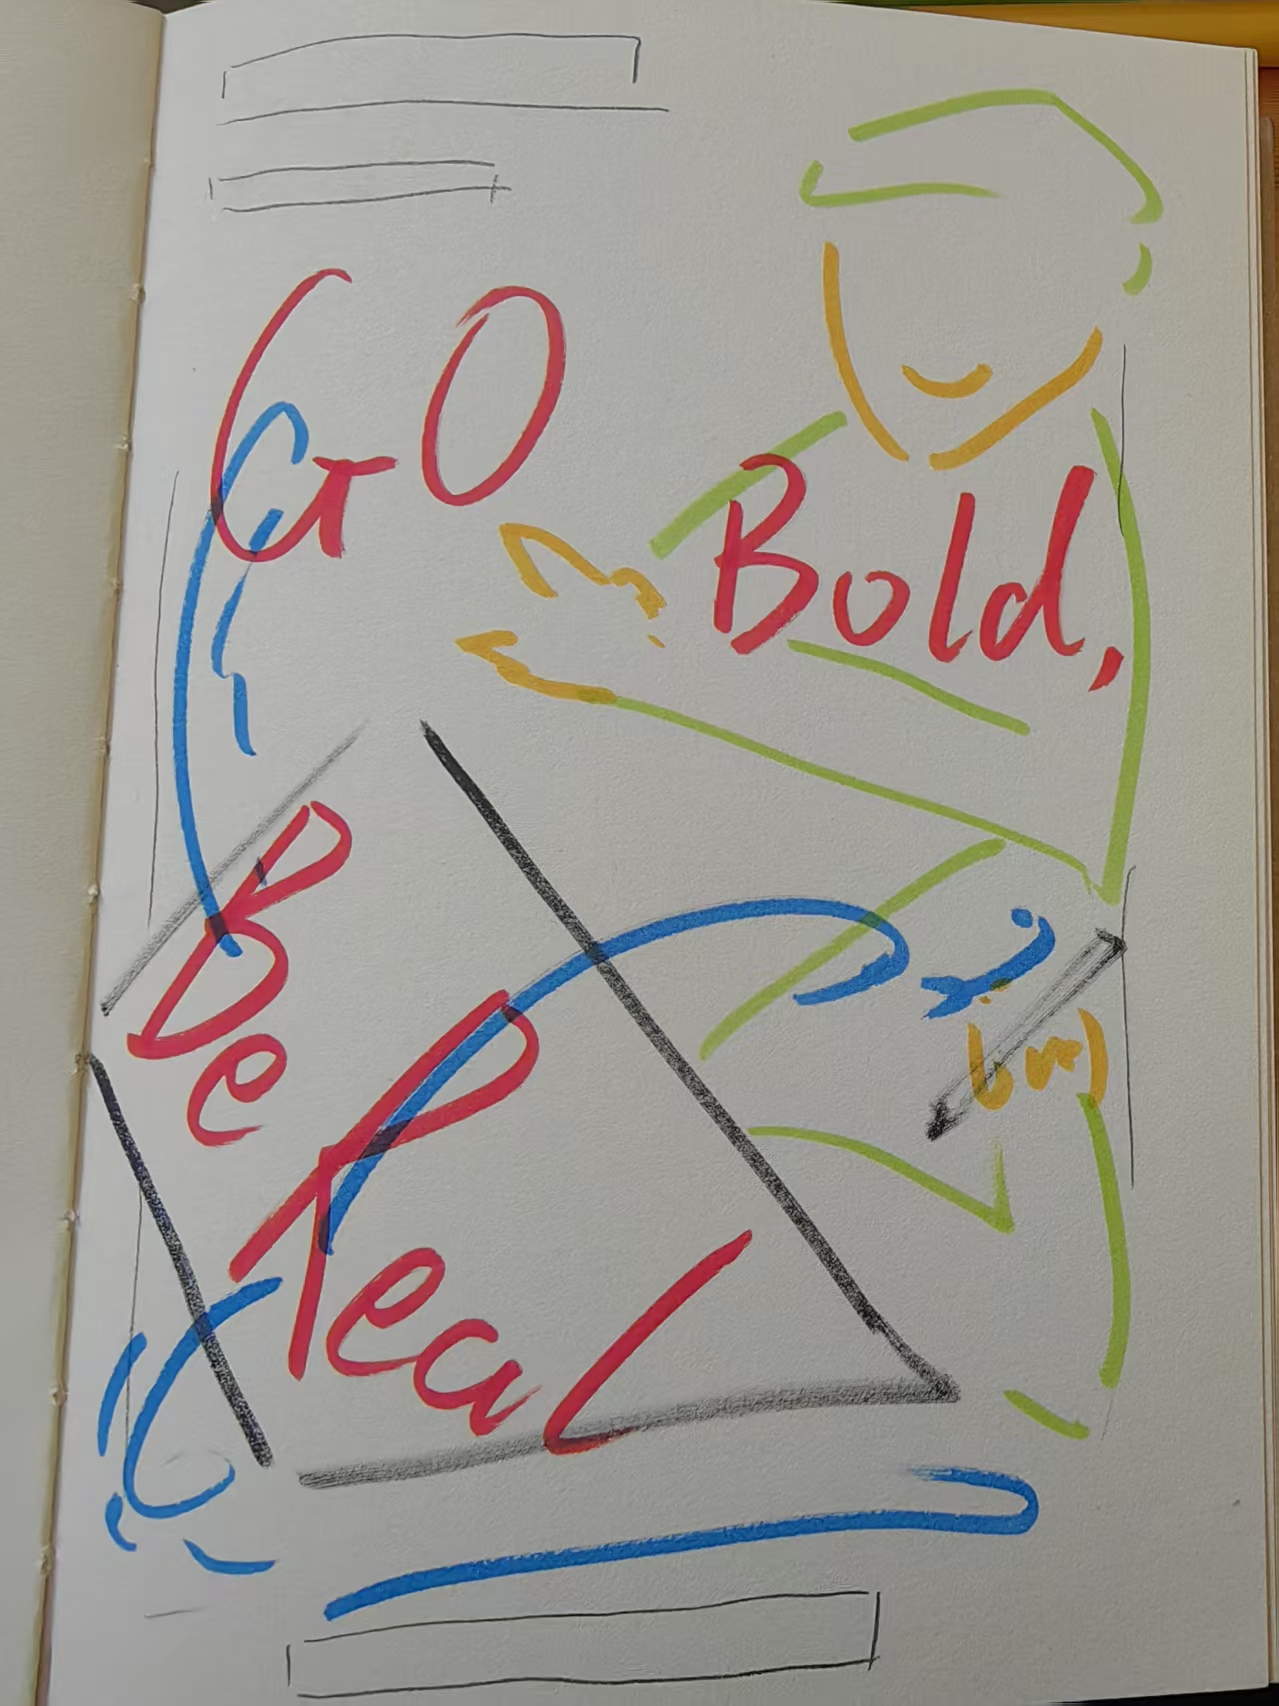 GO
Bold,
Be
Real